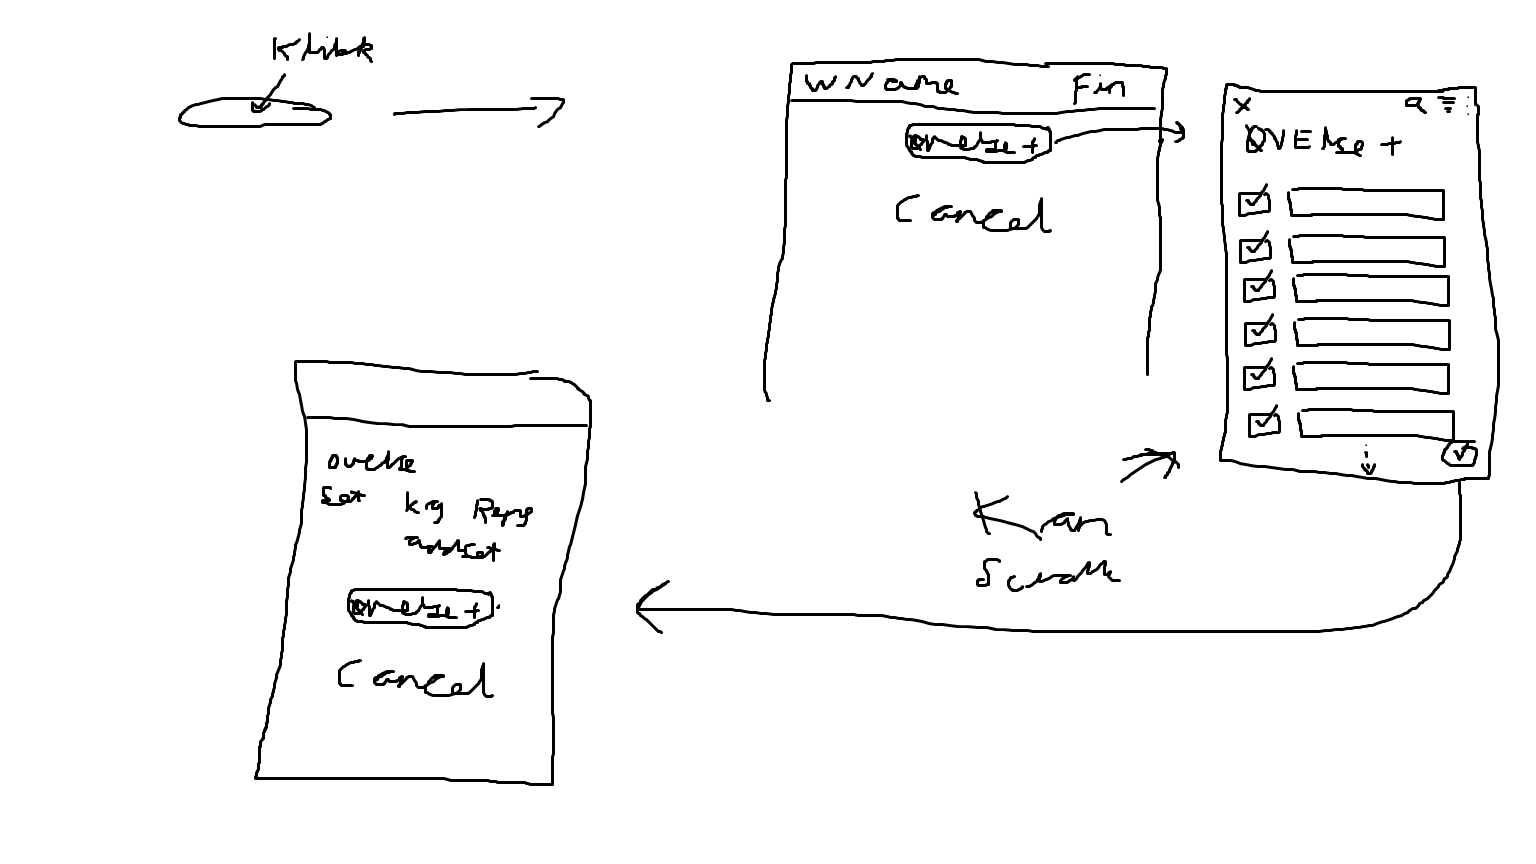 Klikk
W Name Fin
øvelse +
Cancel
X
ØVElse +
Kan
Scrolle
øvelse
Set kg Reps
add set
øvelse +
Cancel